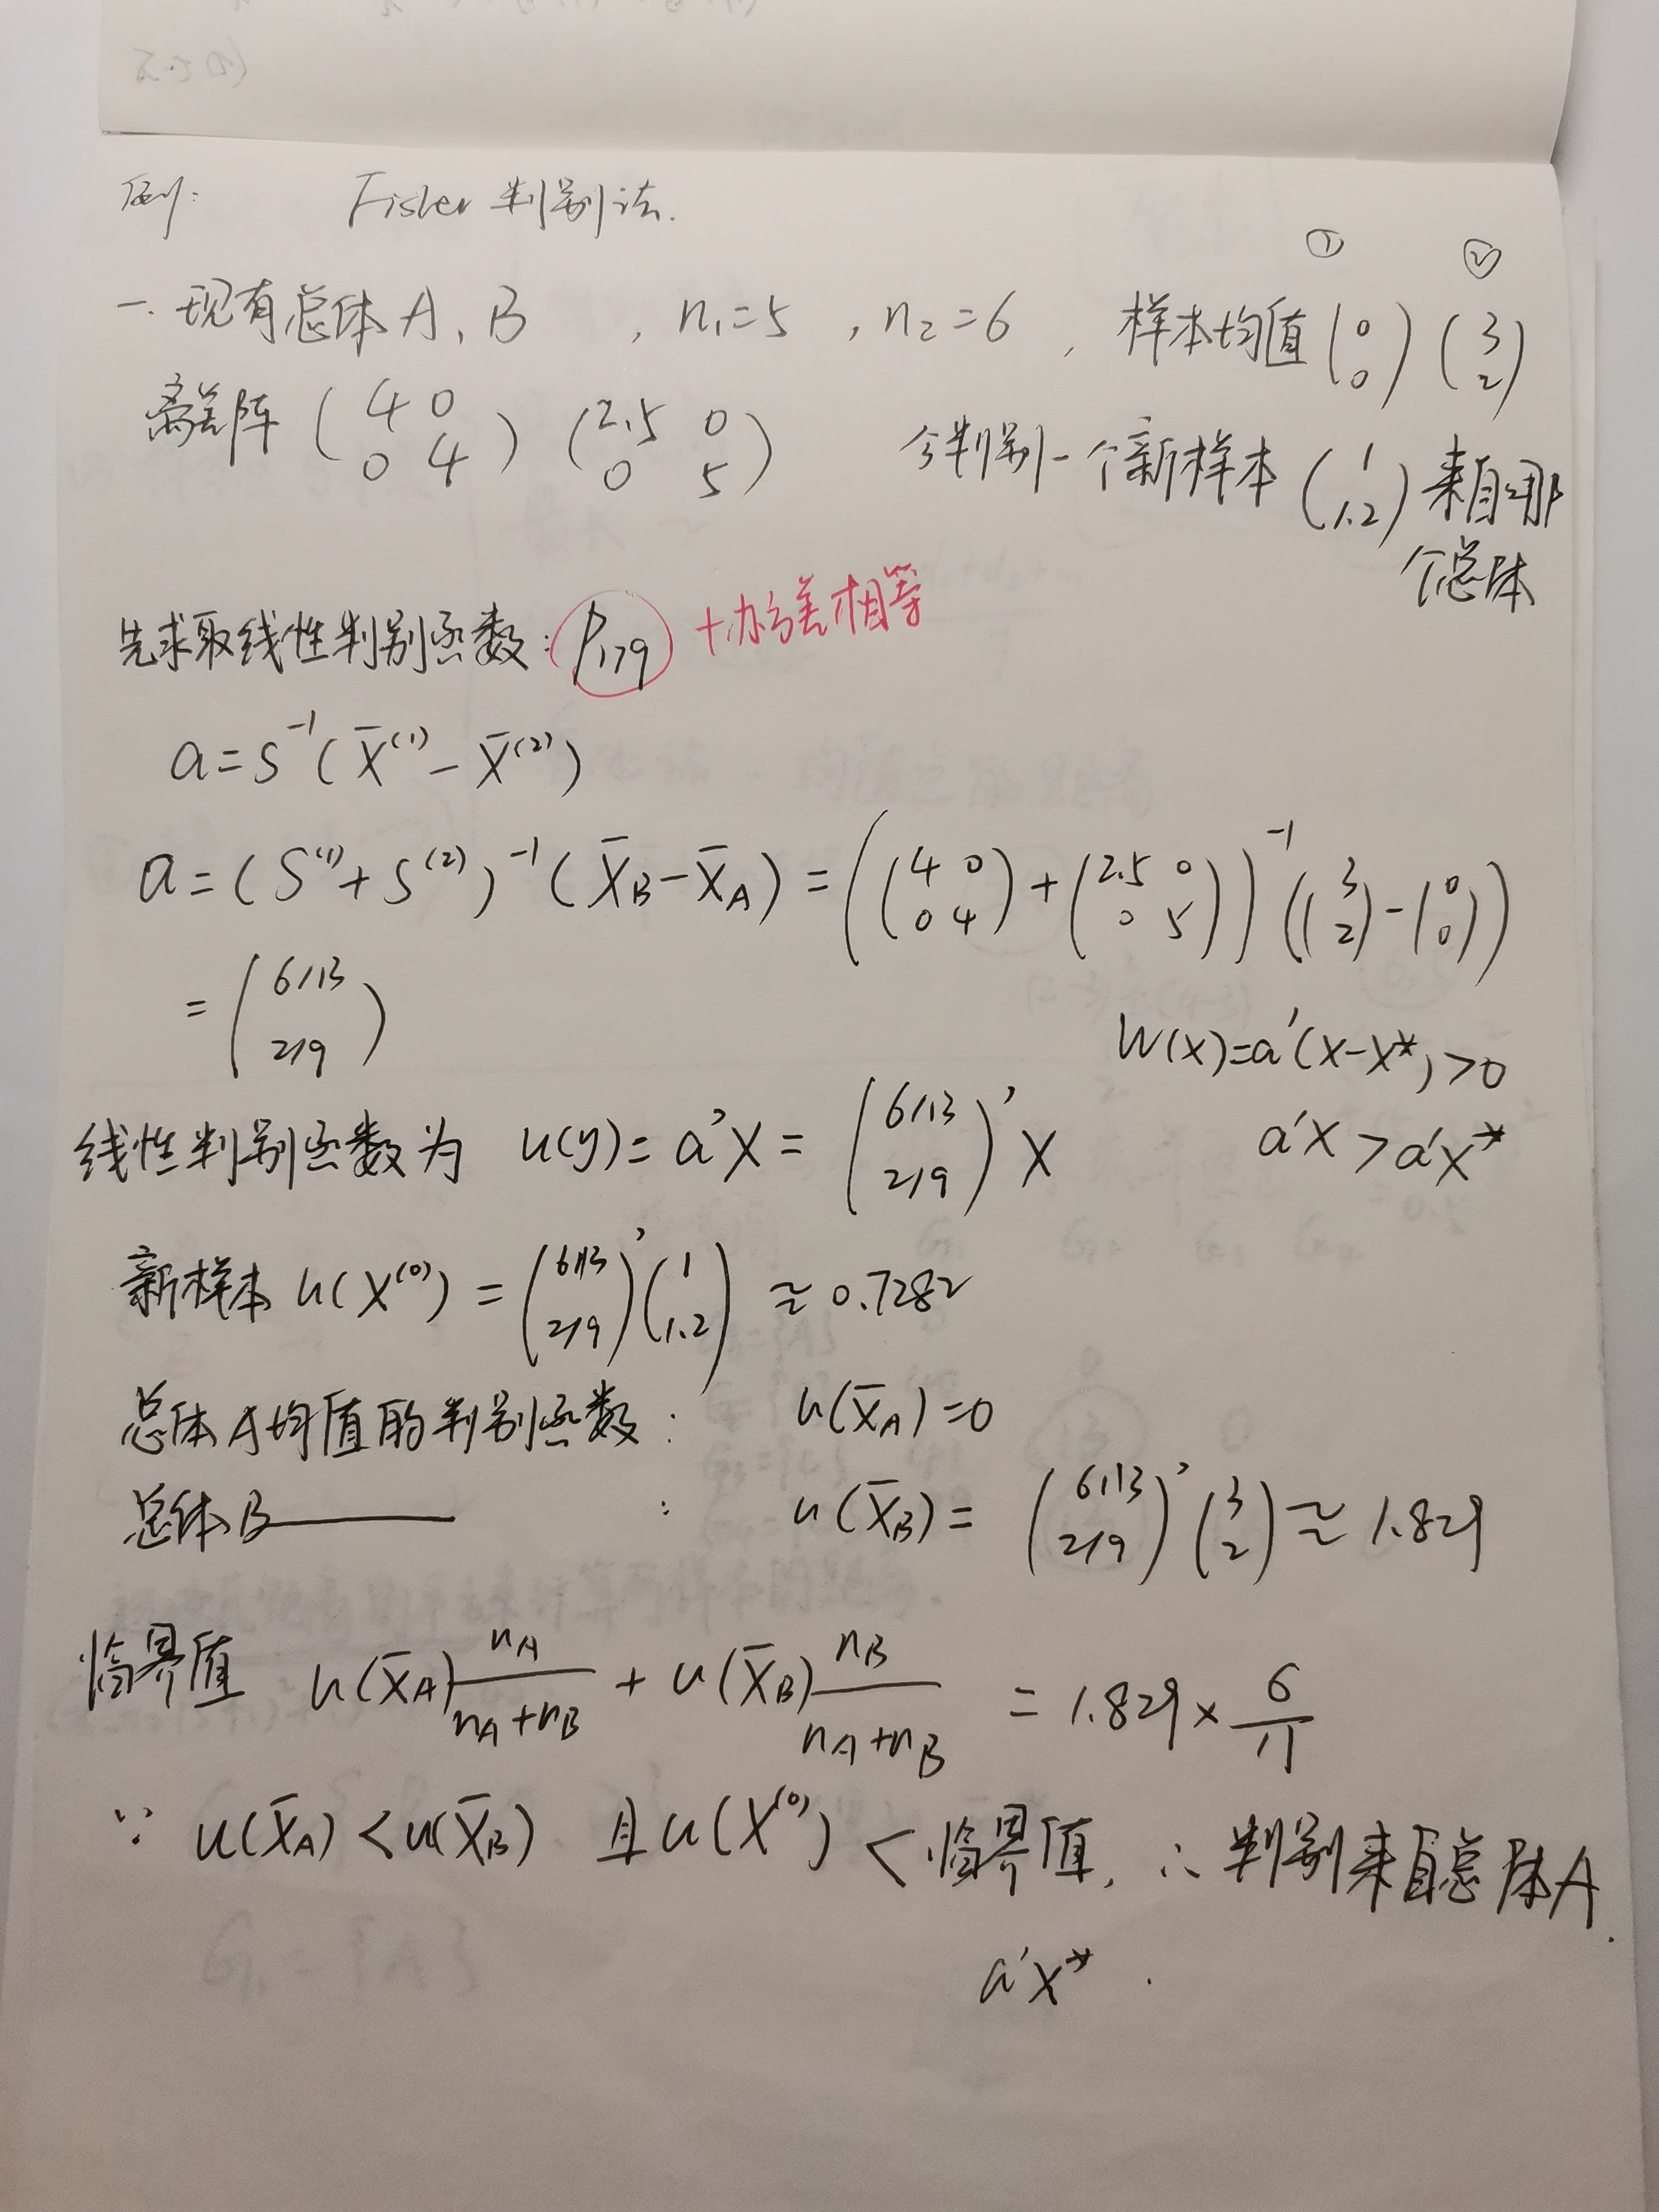 例: Fisher 判别法.
① ②
一. 现有总体 A、B , n₁=5 , n₂=6 , 样本均值 (0 0) (3 2)
离差阵 (4 0 0 4) (2.5 0 0 5) 今判别一个新样本 (1 1.2) 来自哪
个总体
先求取线性判别函数: P179 +协方差相等
a=S⁻¹(X̄⁽¹⁾-X̄⁽²⁾)
a=(S⁽¹⁾+S⁽²⁾)⁻¹(X̄B-X̄A)=((4 0 0 4)+(2.5 0 0 5))⁻¹((3 2)-(0 0))
=(6/13 2/9)
W(X)=a'(X-X*)>0
线性判别函数为 u(y)=a'X=(6/13 2/9)'X a'X>a'X*
新样本 u(X⁽⁰⁾)=(6/13 2/9)'(1 1.2)≈0.7282
总体A均值的判别函数: u(X̄A)=0
总体B—— : u(X̄B)=(6/13 2/9)'(3 2)≈1.829
临界值 u(X̄A) nA/(nA+nB) + u(X̄B) nB/(nA+nB) =1.829×6/11
∵ u(X̄A)<u(X̄B) 且u(X⁽⁰⁾)<临界值, ∴判别来自总体A.
a'X* .